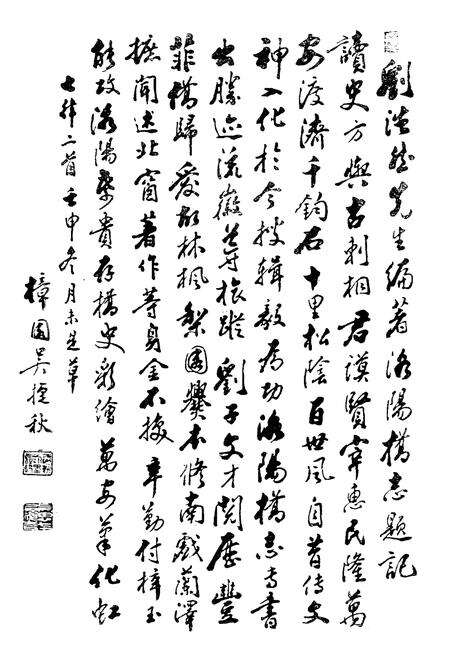 劉浩然先生編著洛陽橋志題記
讀史方輿古刺桐君謨賢宰惠民隆萬
安渡濟千鈞石十里松陰百世風自昔傳文
神入化於今搜輯毅為功洛陽橋志專書
出勝迹流徽導旅蹤劉子文才閱歷豐
菲僑歸愛故林楓梨園爨本修南戲蘭澤
摭聞述北窗著作等身金不換辛勤付梓玉
能攻洛陽紙貴存橋史彩繪萬安筆化虹
七律二首壬申冬月未是草
樟園吳捷秋